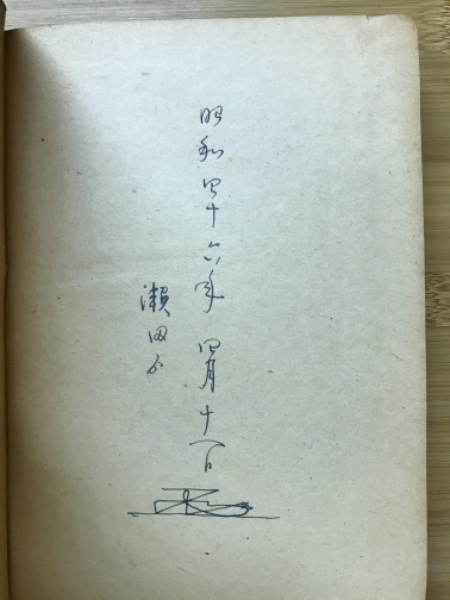 昭和四十六年 四月十八日
瀬田